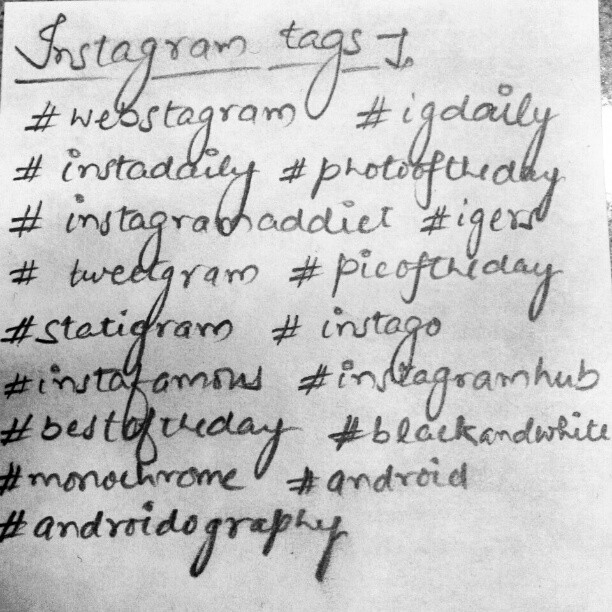 Instagram tags :-
#webstagram #igdaily
# instadaily # photooftheday
# instagramaddict #igers
# tweetgram # picoftheday
#statigram # instago
#instafamous #instagramhub
#bestoftheday #blackandwhite
#monochrome #android
#androidography